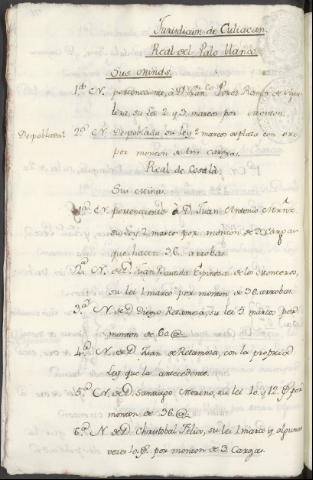 Jurisdiccion de Culiacan
Real del Palo blanco
Sus minas
1ª N. perteneciente, à Dn
su ley 2 y 3 marcos por monton
Despoblada 2ª N. Despoblada su ley 2 marcos de plata con oro
por monton de tres cargas
Real de Cosalá
Sus minas
1ª N. perteneciente à D. Juan Antonio
su ley 2 marcos por monton de 3 Cargas
que hacen 36 arrobas
2ª N. de D. Juan Bautista Espinosa de los Monteros,
su ley 1 marco por monton de 36 arrobas
3ª N. de D. Diego Retamosa, su ley 5 marcos por
monton de 60 @
4ª N. de D. Juan de Retamosa, con la propria
Ley que la antecedente
5ª N. de D. Santiago Moreno, su ley 10 y 12 por
monton de 36 @
6ª N. de D. Christobal Felix, su ley 1 marco y algunas
veces por monton de 3 Cargas